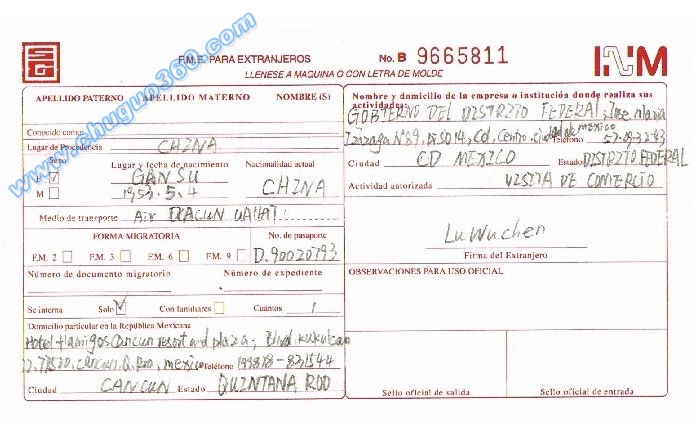 www.chuguo360.com
SG
F.M.E. PARA EXTRANJEROS
No. B 9665811
LLENESE A MAQUINA O CON LETRA DE MOLDE
INM
APELLIDO PATERNO APELLIDO MATERNO NOMBRE (S)
Conocido como:
Lugar de Procedencia CHINA
Sexo Lugar y fecha de nacimiento Nacionalidad actual
GANSU
M 1953.5.4 CHINA
Medio de transporte Air
FORMA MIGRATORIA No. de pasaporte
F.M. 2 F.M. 3 F.M. 6 F.M. 9 D.90020793
Número de documento migratorio Número de expediente
Se interna Solo Con familiares Cuántos 1
Domicilio particular en la República Mexicana
Hotel flamigos Cancun resort and plaza, Blvd. kukulcan
cancun, Q. Roo, mexico Teléfono
Ciudad CANCUN Estado QUINTANA ROO
Nombre y domicilio de la empresa o institución donde realiza sus
actividades:
GOBIERNO DEL DISTRITO FEDERAL, Jose Maria
Izazaga N°89, PISO 14, Cd, Centro, ciudad de mexico
Teléfono
Ciudad CD MEXICO Estado DISTRITO FEDERAL
Actividad autorizada VISITA DE COMERCIO
Lu Wuchen
Firma del Extranjero
OBSERVACIONES PARA USO OFICIAL
Sello oficial de salida Sello oficial de entrada